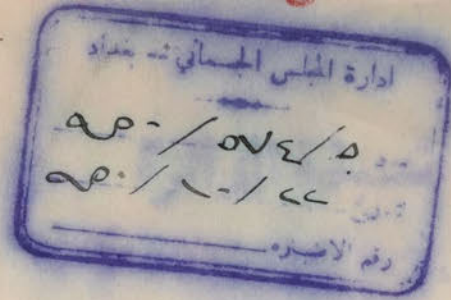 ادارة المجلس الجسماني - بغداد
٩٥٠/٥٧٤/٥
٩٥٠/١٠/٢٢
رقم الاضباره